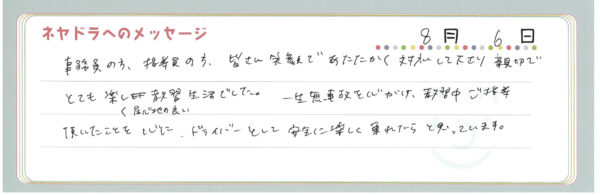 ネヤドラへのメッセージ
8月 6日
事務員の方、指導員の方、皆さん笑顔であたたかく対応して下さり親切で
とても楽しく居心地の良い教習生活でした。 一生無事故を心がけ、教習中ご指導
頂いたことを心に、ドライバーとして安全に楽しく乗れたらと思っています。